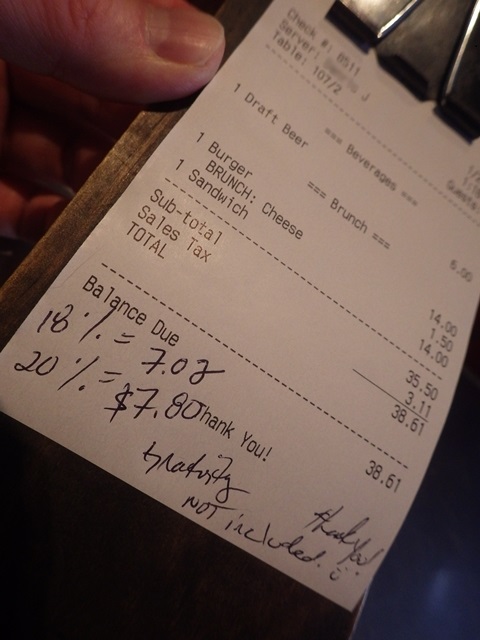 Check #: 8511
Server: J
Table: 107/2
Guests
=== Beverages ===
1 Draft Beer 6.00
=== Brunch ===
1 Burger 14.00
BRUNCH: Cheese 1.50
1 Sandwich 14.00
Sub-total 35.50
Sales Tax 3.11
TOTAL 38.61
Balance Due 38.61
18% = 7.02
20% = $7.80
Thank You!
gratuity
NOT included.
thank you!